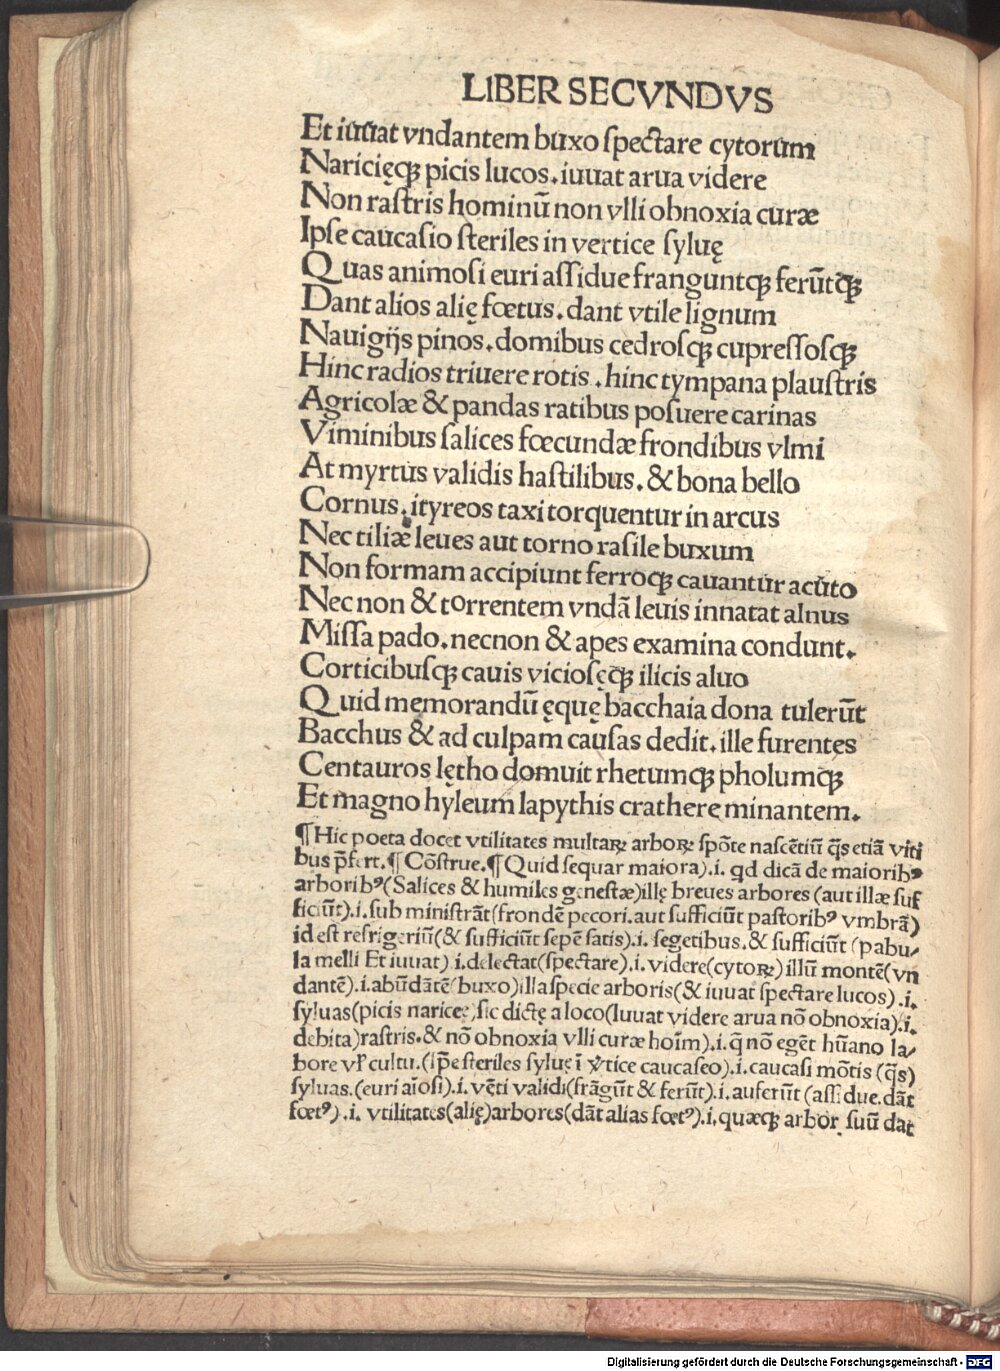 LIBER SECVNDVS
Et iuuat vndantem buxo ſpectare cytorum
Naricięq; picis lucos. iuuat arua videre
Non raſtris hominū non vlli obnoxia curæ
Ipſe caucaſio ſteriles in vertice ſyluę
Quas animoſi euri aſſidue franguntq; ferūtq;
Dant alios alię fœtus. dant vtile lignum
Nauigijs pinos. domibus cedroſq; cupreſſoſq;
Hinc radios triuere rotis . hinc tympana plauſtris
Agricolæ & pandas ratibus poſuere carinas
Viminibus ſalices fœcundæ frondibus vlmi
At myrtus validis haſtilibus. & bona bello
Cornus. ityreos taxi torquentur in arcus
Nec tiliæ leues aut torno raſile buxum
Non formam accipiunt ferroq; cauantur acuto
Nec non & torrentem vndā leuis innatat alnus
Miſſa pado. necnon & apes examina condunt.
Corticibuſq; cauis vicioſęq; ilicis aluo
Quid memorandū ęquę bacchaia dona tulerūt
Bacchus & ad culpam cauſas dedit. ille furentes
Centauros lętho domuit rhetumq; pholumq;
Et magno hyleum lapythis crathere minantem.
¶Hic poeta docet vtilitates multaꝝ arboꝝ ſpōte naſcētiū q̄s etiā viti
bus p̄fert.¶Cōſtrue.¶Quid ſequar maiora).i. qd dicā de maioribꝰ
arboribꝰ(Salices & humiles geneſtæ)illę breues arbores (aut illæ ſuf
ficiūt).i. ſub miniſtrāt(frondē pecori. aut ſufficiūt paſtoribꝰ vmbrā)
id eſt refrigeriū(& ſufficiūt ſepē ſatis).i. ſegetibus. & ſufficiūt (pabu/
la melli Et iuuat) .i. delectat(ſpectare).i. videre(cytoꝝ) illū montē(vn
dantē).i. abūdātē(buxo)illa ſpecie arboris(& iuuat ſpectare lucos) .i.
ſyluas(picis naricęę)ſic dictę a loco(Iuuat videre arua nō obnoxia).i.
debita)raſtris. & nō obnoxia vlli curæ hoīm).i. q̄ nō egēt hūano la/
bore vł cultu.(ip̄e ſteriles ſyluę ī v̄tice caucaſeo).i. caucaſi mōtis (q̄s)
ſyluas.(euri aīoſi).i. vēti validi(frāgūt & ferūt).i. auferūt (aſſidue. dāt
fœtꝰ).i. vtilitates(alię)arbores(dāt alias fœtꝰ).i. quæq; arbor ſuū dat
Digitalisierung gefördert durch die Deutsche Forschungsgemeinschaft - DFG